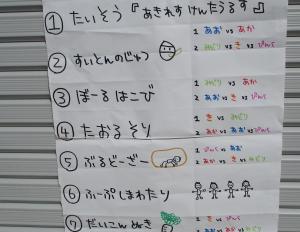 ① たいそう 『あきれすけんたうるす』
1 あお vs あか
② すいとんのじゅつ
1 みどり vs ぴんく
2 みどり vs き vs ぴんく
③ ぼーるはこび
1 みどり vs あか
2 あお vs き vs ぴんく
④ たおるそり
1 き vs みどり
2 あか vs あお vs ぴんく
⑤ ぶるどーざー
1 ぴんく vs あお
2 あか vs き vs みどり
⑥ ふーぷしまわたり
⑦ だいこんぬき